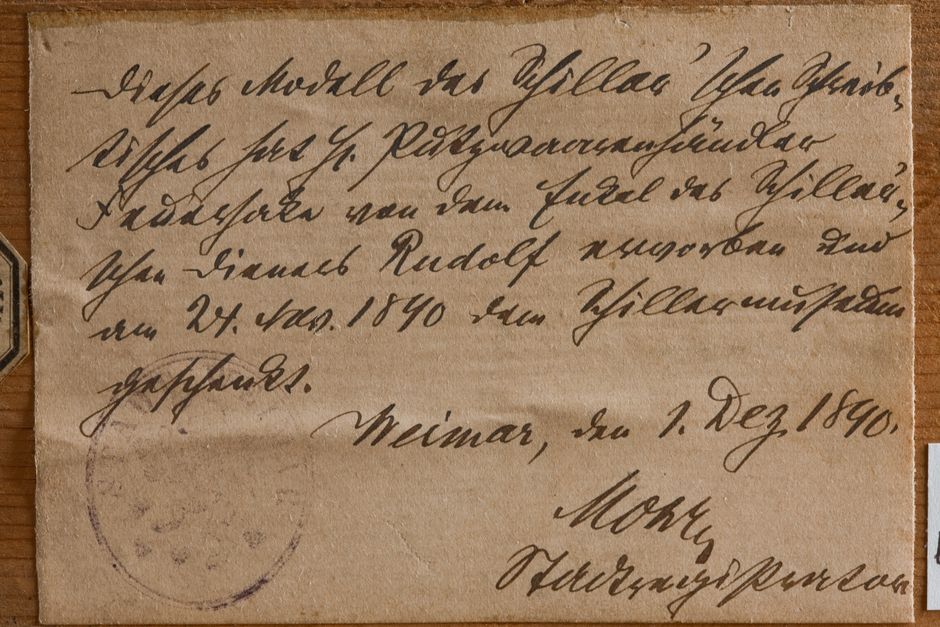 Dieses Modell des Schiller'schen Schreib-
tisches hat H. Putzwaarenhändler
Feuerhake von dem Enkel des Schiller'-
schen Dieners Rudolf erworben und
am 24. Nov. 1890 dem Schillermuseum
geschenkt.
Weimar, den 1. Dez 1890.
Stadtregistrator